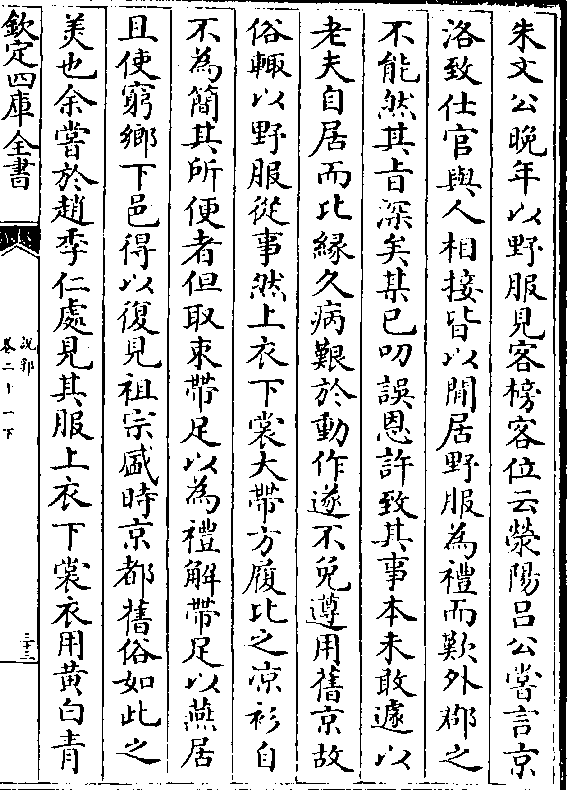 朱文公晚年以野服見客榜客位云滎陽吕公嘗言京
洛致仕官與人相接皆以閒居野服為禮而歎外郡之
不能然其㫖深矣某已叨誤恩許致其事本未敢遽以
老夫自居而比縁久病艱於動作遂不免遵用舊京故
俗輙以野服從事然上衣下裳大帶方履比之凉衫自
不為簡其所便者但取束帶足以為禮解帶足以燕居
且使窮鄉下邑得以復見祖宗盛時京都舊俗如此之
美也余嘗於趙季仁處見其服上衣下裳衣用黄白青
欽定四庫全書
説郛
卷二十一下
三十二